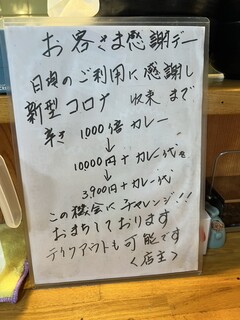 お客さま感謝デー
日頃のご利用に感謝し
新型コロナ 収束まで
辛さ 1,000倍 カレー
↓
10,000円+カレー代を
↓
3,900円+カレー代
この機会にチャレンジ!!
おまちしております
テイクアウトも可能です
〈店主〉